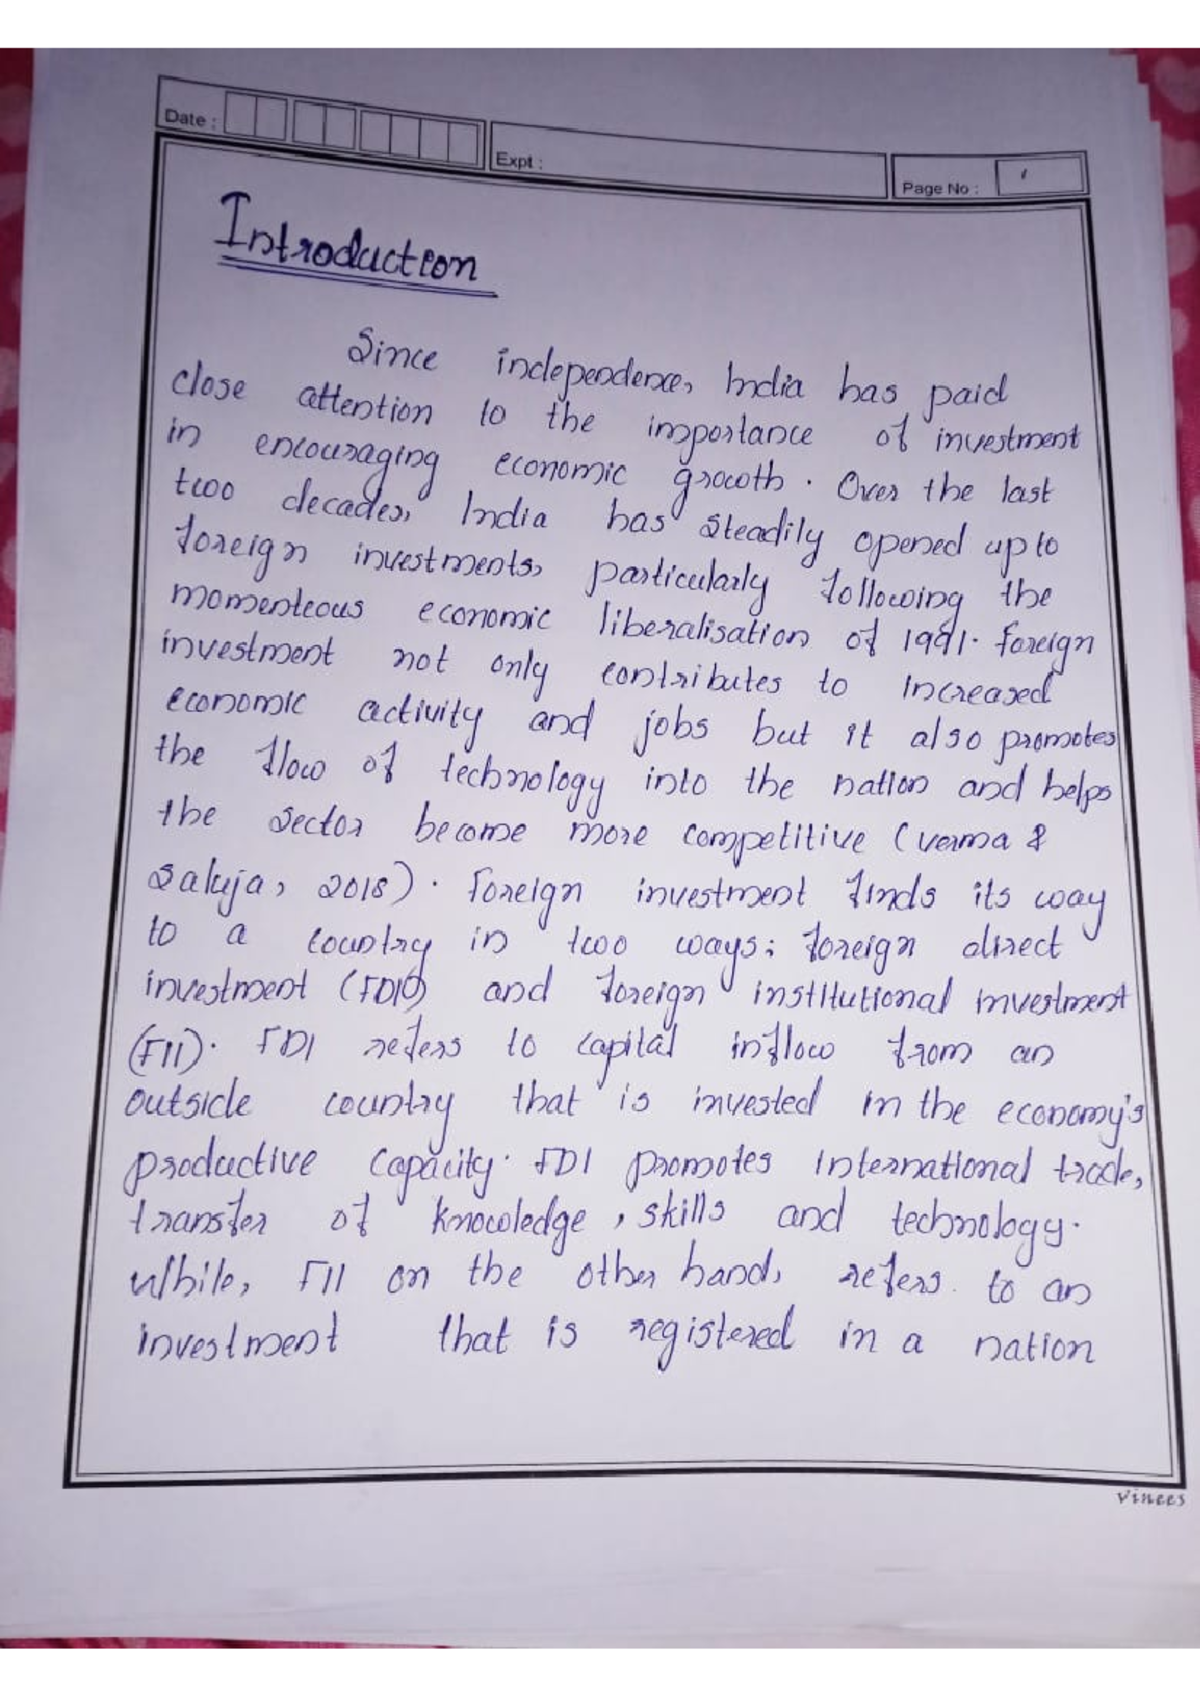 Date :
Expt :
Page No :
Introduction
Since independence, India has paid
close attention to the importance of investment
in encouraging economic growth. Over the last
two decades, India has steadily opened up to
foreign investments, particularly following the
momenteous economic liberalisation of 1991. Foreign
investment not only contributes to increased
economic activity and jobs but it also promotes
the flow of technology into the nation and helps
the sector become more competitive (Verma &
Saluja, 2018). Foreign investment finds its way
to a country in two ways; foreign direct
investment (FDI) and foreign institutional investment
(FII). FDI refers to capital inflow from an
outside country that is invested in the economy's
productive capacity. FDI promotes international trade,
transfer of knowledge, skills and technology.
While, FII on the other hand, refers to an
investment that is registered in a nation
Vinees